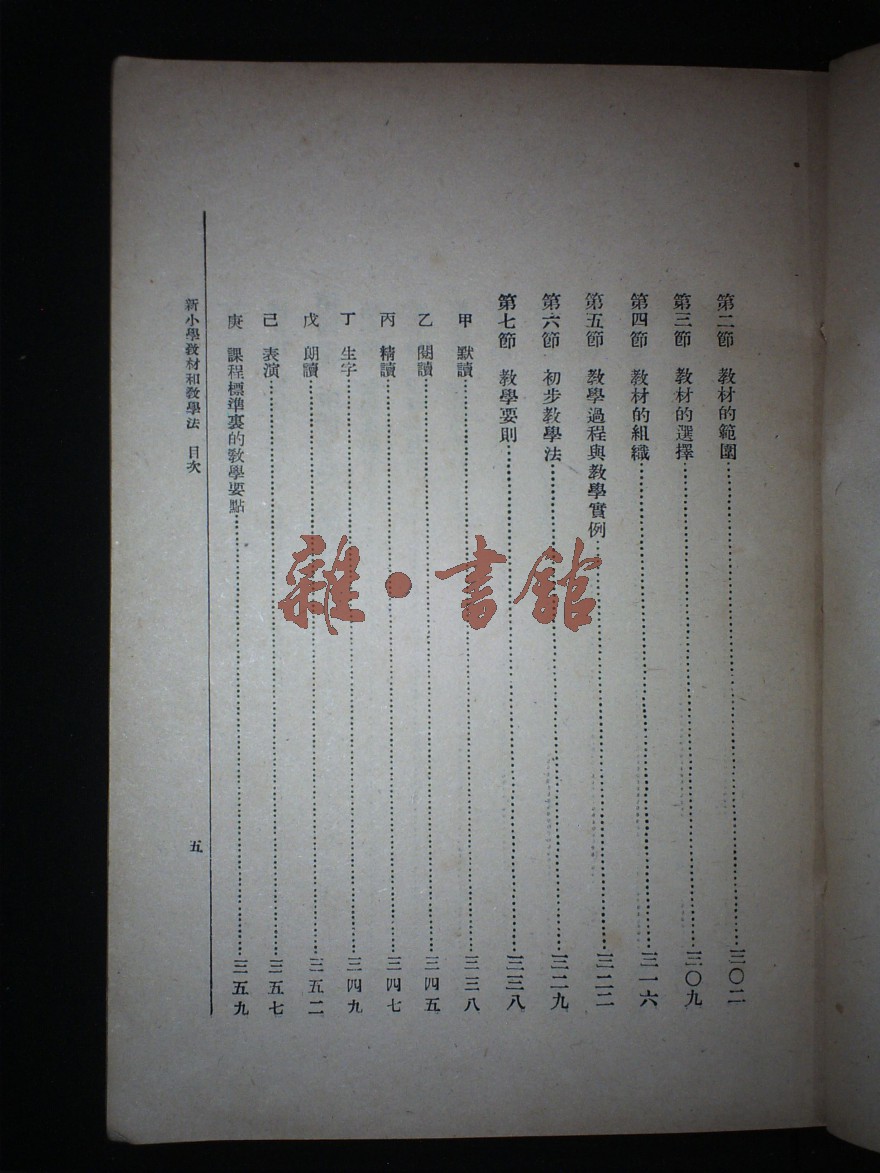 第二節 教材的範圍……三〇二
第三節 教材的選擇……三〇九
第四節 教材的組織……三一六
第五節 教學過程與教學實例……三二二
第六節 初步教學法……三二九
第七節 教學要則……三三八
甲 默讀……三三八
乙 閱讀……三四五
丙 精讀……三四七
丁 生字……三四九
戊 朗讀……三五二
己 表演……三五七
庚 課程標準裏的教學要點……三五九
新小學教材和教學法 目次 五
雜·書館